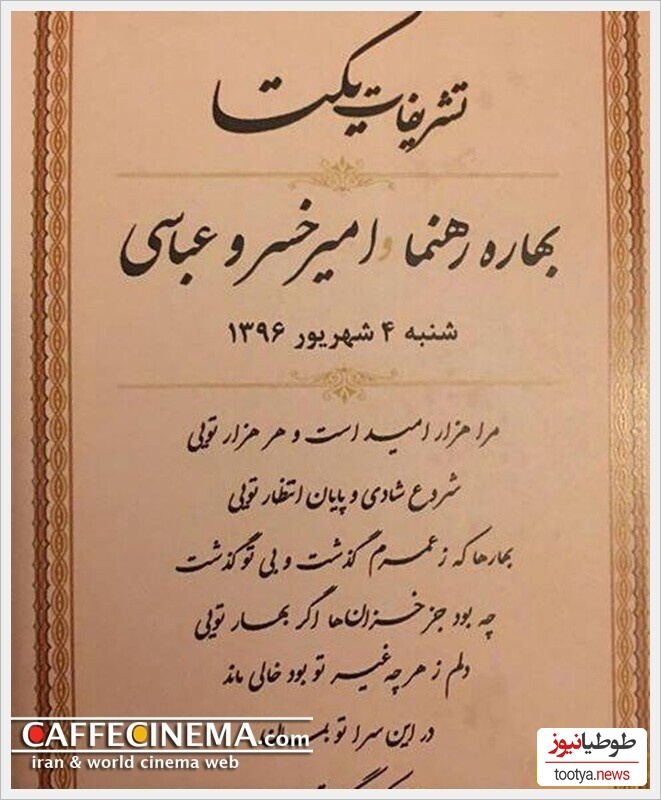 تشریفات یکتا
بهاره رهنما و امیرخسرو عباسی
شنبه ۴ شهریور ۱۳۹۶
مرا هزار امید است و هر هزار تویی
شروع شادی و پایان انتظار تویی
بهارها که ز عمرم گذشت و بی تو گذشت
چه بود جز خزان‌ها اگر بهار تویی
دلم ز هر چه غیر تو بود خالی ماند
در این سرا تو
CAFFECINEMA.com
iran & world cinema web
طوطیانیوز
tootya.news